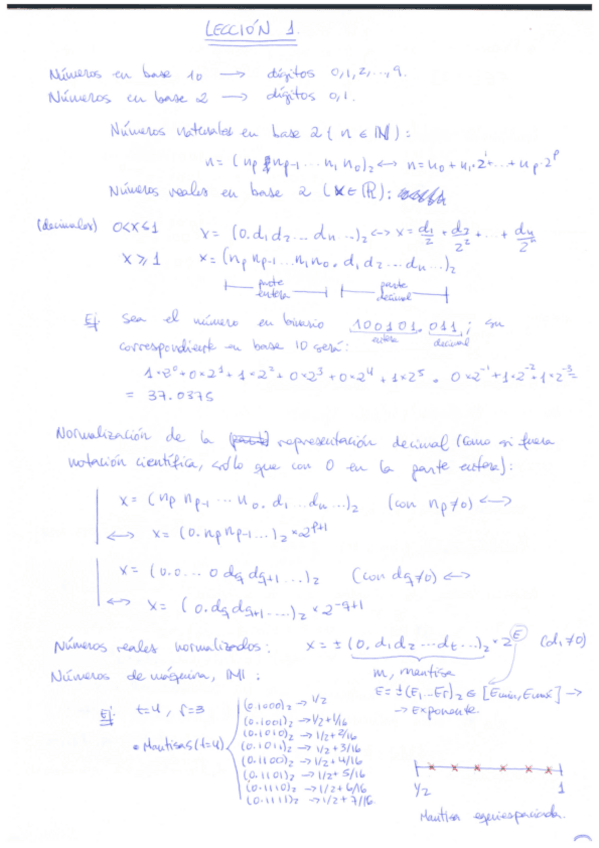 LECCIÓN 1.
Números en base 10 → dígitos 0,1,2,...,9.
Números en base 2 → dígitos 0,1.
Números naturales en base 2 (n ∈ ℕ):
n = (np np-1 ... n1 n0)2 ↔ n = n0 + n1·2¹ + ... + np·2^p
Números reales en base 2 (x ∈ ℝ):
(decimales) 0<x≤1 x = (0.d1 d2 ... dn ...)2 ↔ x = d1/2 + d2/2² + ... + dn/2^n
x ≥ 1 x = (np np-1 ... n1 n0. d1 d2 ... dn ...)2
parte entera parte decimal
Ej Sea el número en binario 100101.011; su
entera decimal
correspondiente en base 10 será:
1×2⁰+0×2¹+1×2²+0×2³+0×2⁴+1×2⁵ . 0×2⁻¹+1×2⁻²+1×2⁻³=
= 37.0375
Normalización de la representación decimal (como si fuera
notación científica, sólo que con 0 en la parte entera):
x = (np np-1 ... n0. d1 ... dn ...)2 (con np≠0) ↔
↔ x = (0.np np-1 ...)2 × 2^p+1
x = (0.0...0 dq dq+1 ...)2 (con dq≠0) ↔
↔ x = (0.dq dq+1 ...)2 × 2^-q+1
Números reales normalizados: x = ± (0.d1 d2 ... dt ...)2 × 2^E (d1≠0)
m, mantisa
Números de máquina, 𝕄:
E = ±(E1...Er)2 ∈ [Emín, Emáx] →
→ Exponente
Ej. t=4, r=3
• Mantisas (t=4)
(0.1000)2 → 1/2
(0.1001)2 → 1/2+1/16
(0.1010)2 → 1/2+2/16
(0.1011)2 → 1/2+3/16
(0.1100)2 → 1/2+4/16
(0.1101)2 → 1/2+5/16
(0.1110)2 → 1/2+6/16
(0.1111)2 → 1/2+7/16
1/2 1
Mantisa equiespaciada.